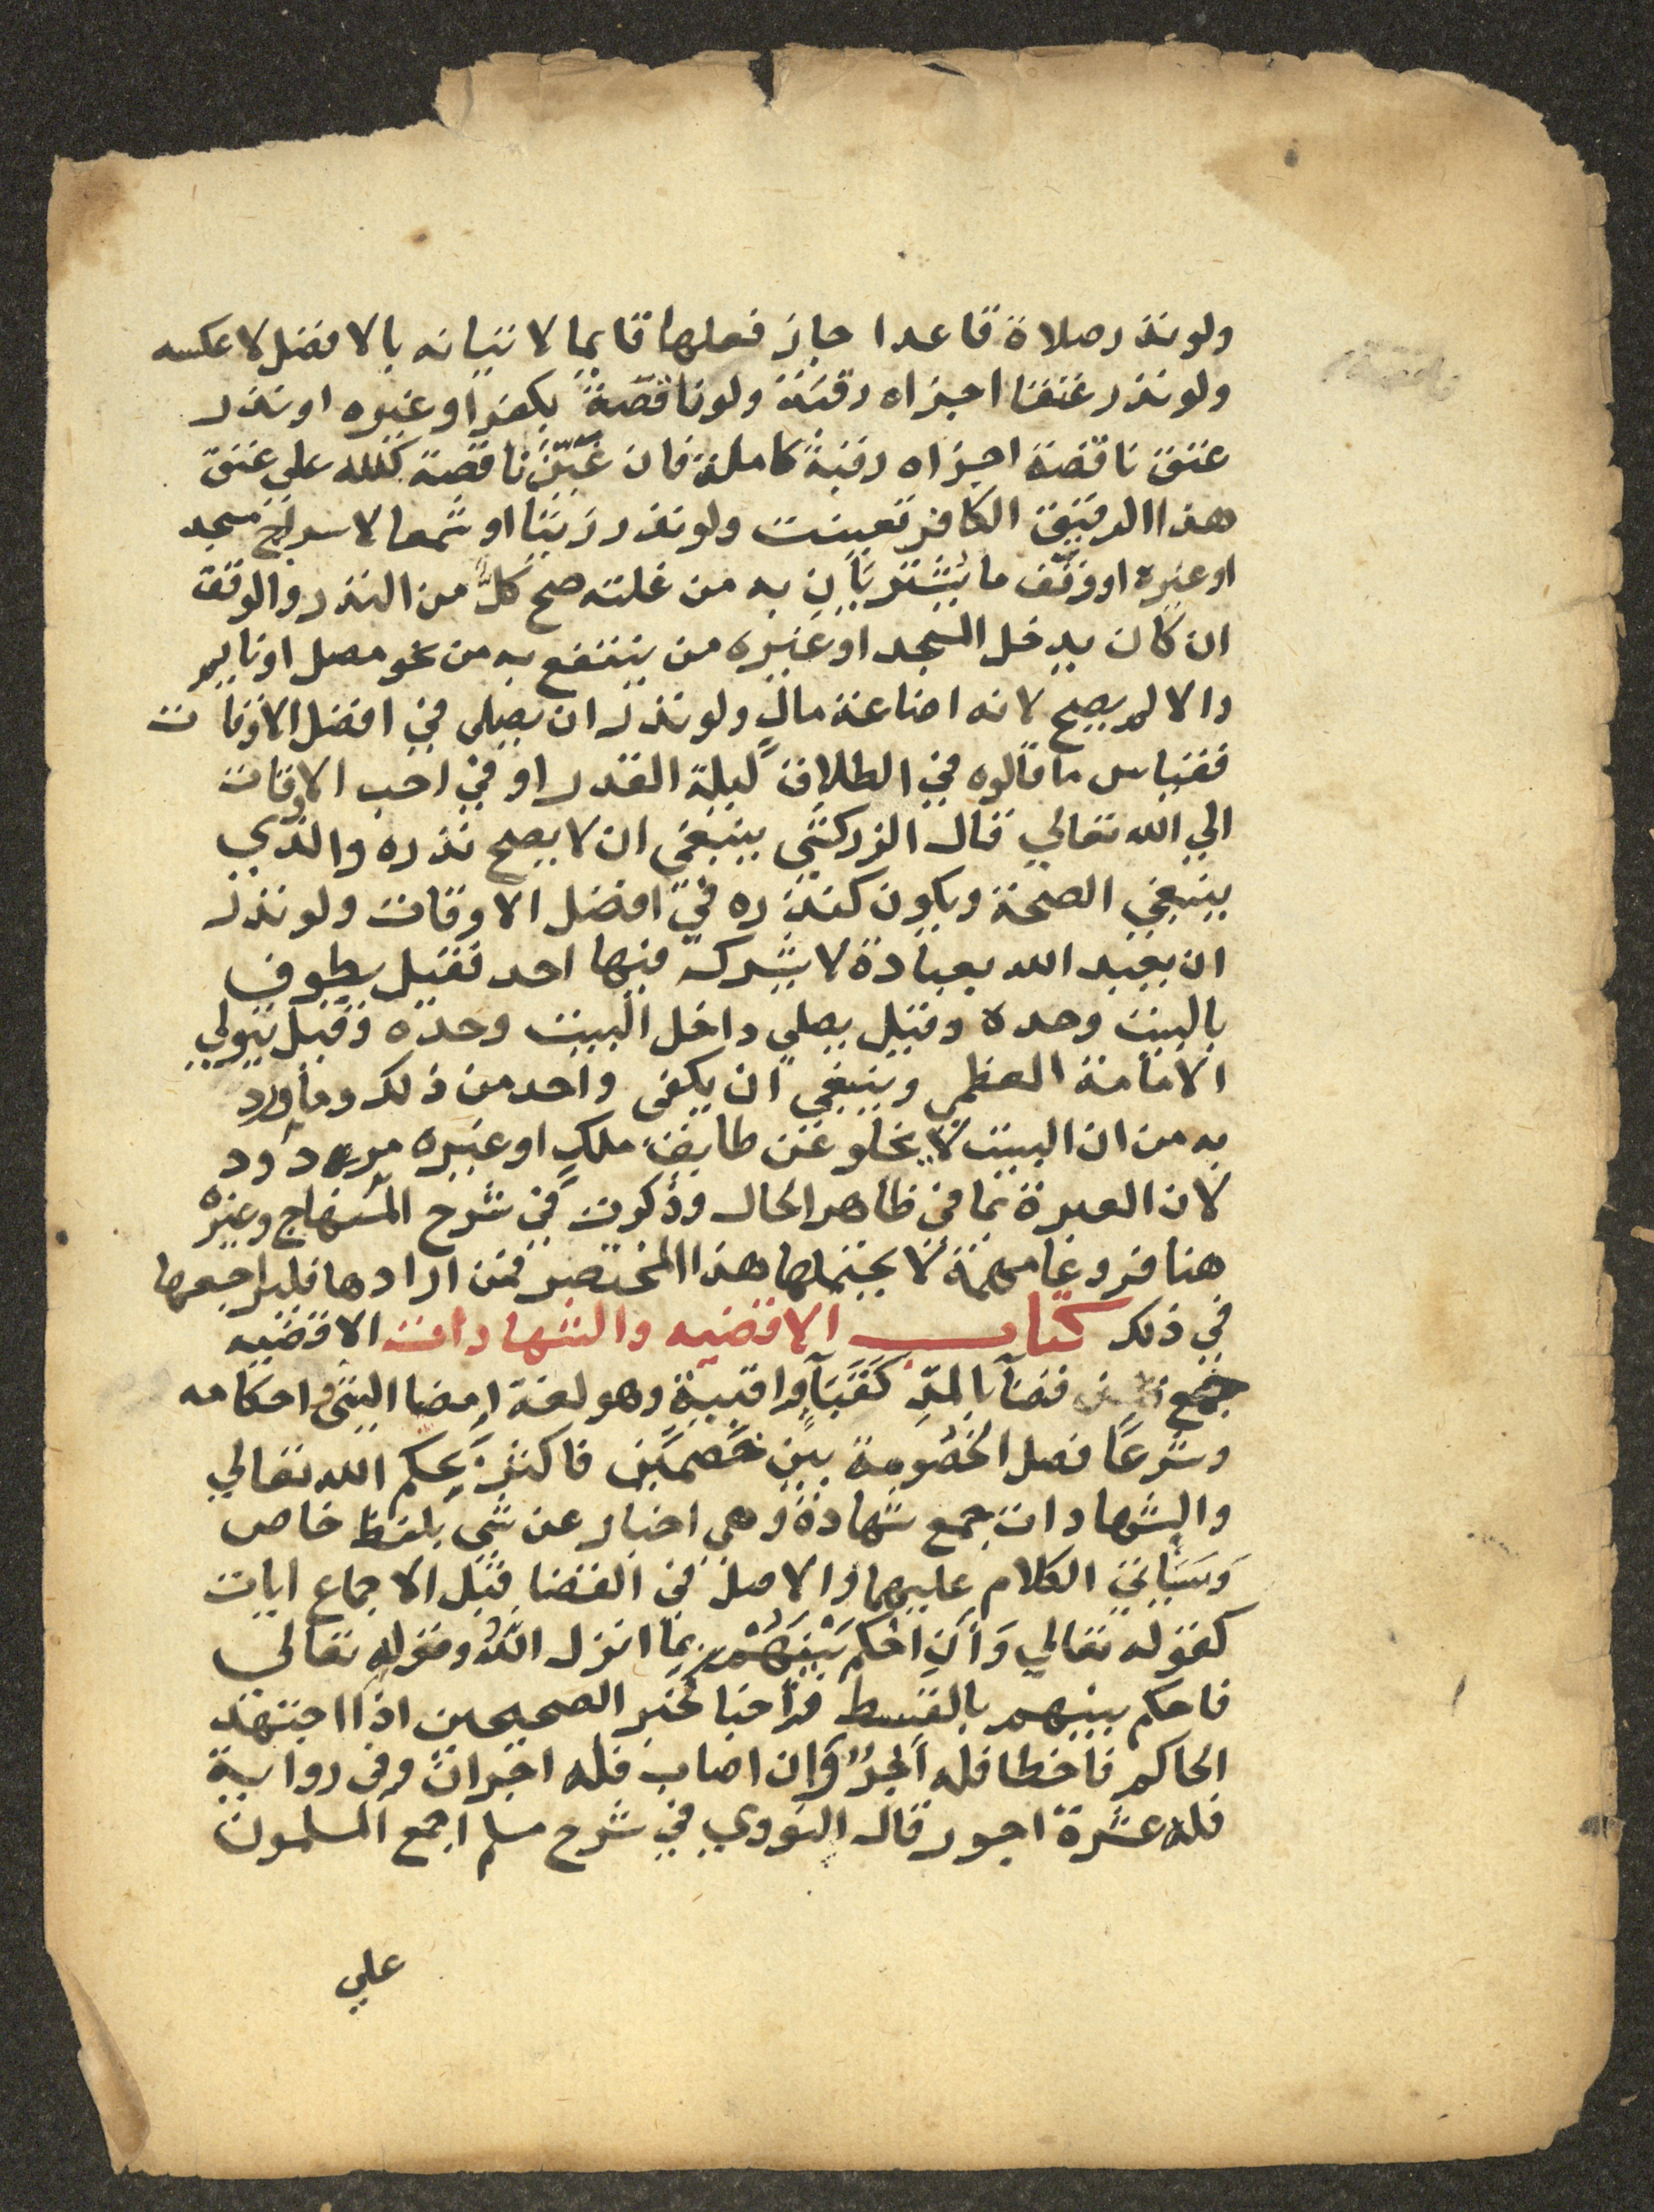 ولو نذر صلاة قاعدا جاز فعلها قايما لاتيانه بالافضل لا عكسه
ولو نذر عتقا اجزاه رقبة ولو ناقصة بكفر او غيره او نذر
عتق ناقصة اجزاه رقبة كاملة فان عَيَّنَ ناقصة كلله على عتق
هذا الرقيق الكافر تعينت ولو نذر زيتا او شمعا لاسراج مسجد
او غيره او وقف ما يُشتريَانِ به من غلته صح كلٌ من النذر والوقف
ان كان يدخل المسجد او غيره من ينتفع به من نحو مصل او نايم
والا لم يصح لانه اضاعة مال ولو نذر ان يصلى في افضل الاوقات
فقياس ما قالوه في الطلاق ليلة القدر او في احب الاوقات
الي الله تعالي قال الزركشي ينبغي ان لا يصح نذره والذي
ينبغي الصحة ويكون كنذره في افضل الاوقات ولو نذر
ان يعبد الله بعبادة لا يشركه فيها احد فقيل يطوف
بالبيت وحده وقيل يصلي داخل البيت وحده وقيل يتولي
الامامة العظمي وينبغي ان يكفى واحد من ذلك وما ورد
به من ان البيت لا يخلو عن طايف ملك او غيره مردود
لان العبرة بما في ظاهر الحال وذكرت في شرح المنهاج وغيره
هنا فروعا مهمة لا يحتملها هذا المختصر فمن ارادها فليراجعها
في ذلك كتاب الاقضيه والشهادات الاقضيه
جمع قضآ بالمدِّ كَقَبَآ واقبية وهو لغة امضا الشئ واحكامه
وشرعًا فصل الخصُومة بين خَصمَين فاكثر بحكم الله تعالي
والشهادات جمع شهادة وهي اخبار عن شي بلفظ خاص
وَسَيَاتي الكلام عليهما والاصل في القضا قبل الاجماع ايات
كقوله تعالي وَأَنِ احْكم بَيْنَهُمْ بِمَا انزل اللّهُ وقوله تعالي
فاحكم بينهم بالقسط واخبا كخبر الصحيحين اذا اجتهد
الحاكم فاخطا فله اَجرٌ وَان اصاب فله اجران وفى رواية
فله عشرة اجور قال النووي في شرح مسلم اجمع المسلمون
علي